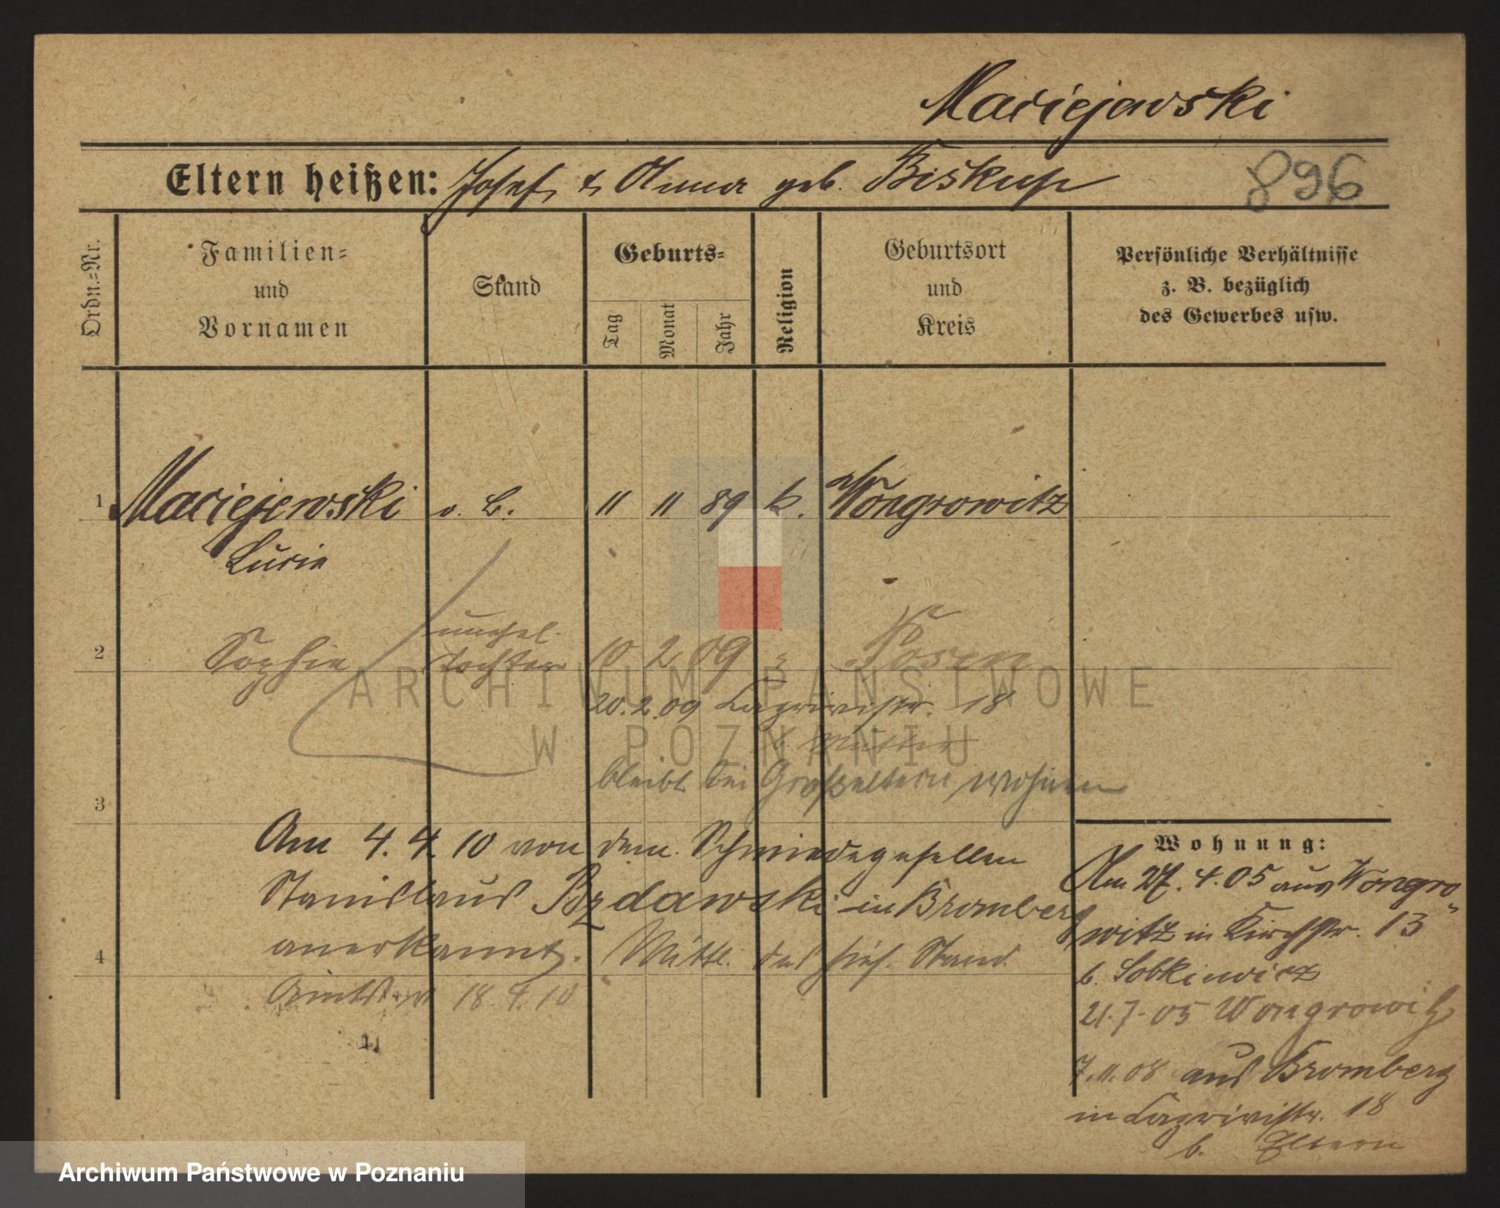 Maciejewski
Eltern heißen: Josef & Anna geb. Biskup
896
Ordn.=Nr.
Familien=
und
Vornamen
Stand
Geburts=
Tag
Monat
Jahr
Religion
Geburtsort
und
Kreis
Persönliche Verhältnisse
z. B. bezüglich
des Gewerbes usw.
1 Maciejewski o. B. " " 89 k. Wongrowitz
Lucie
unehel.
2 Sophie Tochter 10 2 09 " Posen
20.2.09 18
b. Mutter
bleibt bei Großeltern wohnen
3
Am 4. 4. 10 von dem Schmiedegesellen
Stanislaus Bzdawski in Bromberg
anerkannt. Mittl. des hies. Stand.
4
18.4.10
Wohnung:
Am 27.4.05 aus Wongro
witz in Kirchstr. 13
b. Sobkiewicz
21.7.05 Wongrowitz
7.11.08 aus Bromberg
in 18
b. Eltern
ARCHIWUM PAŃSTWOWE
W POZNANIU
Archiwum Państwowe w Poznaniu